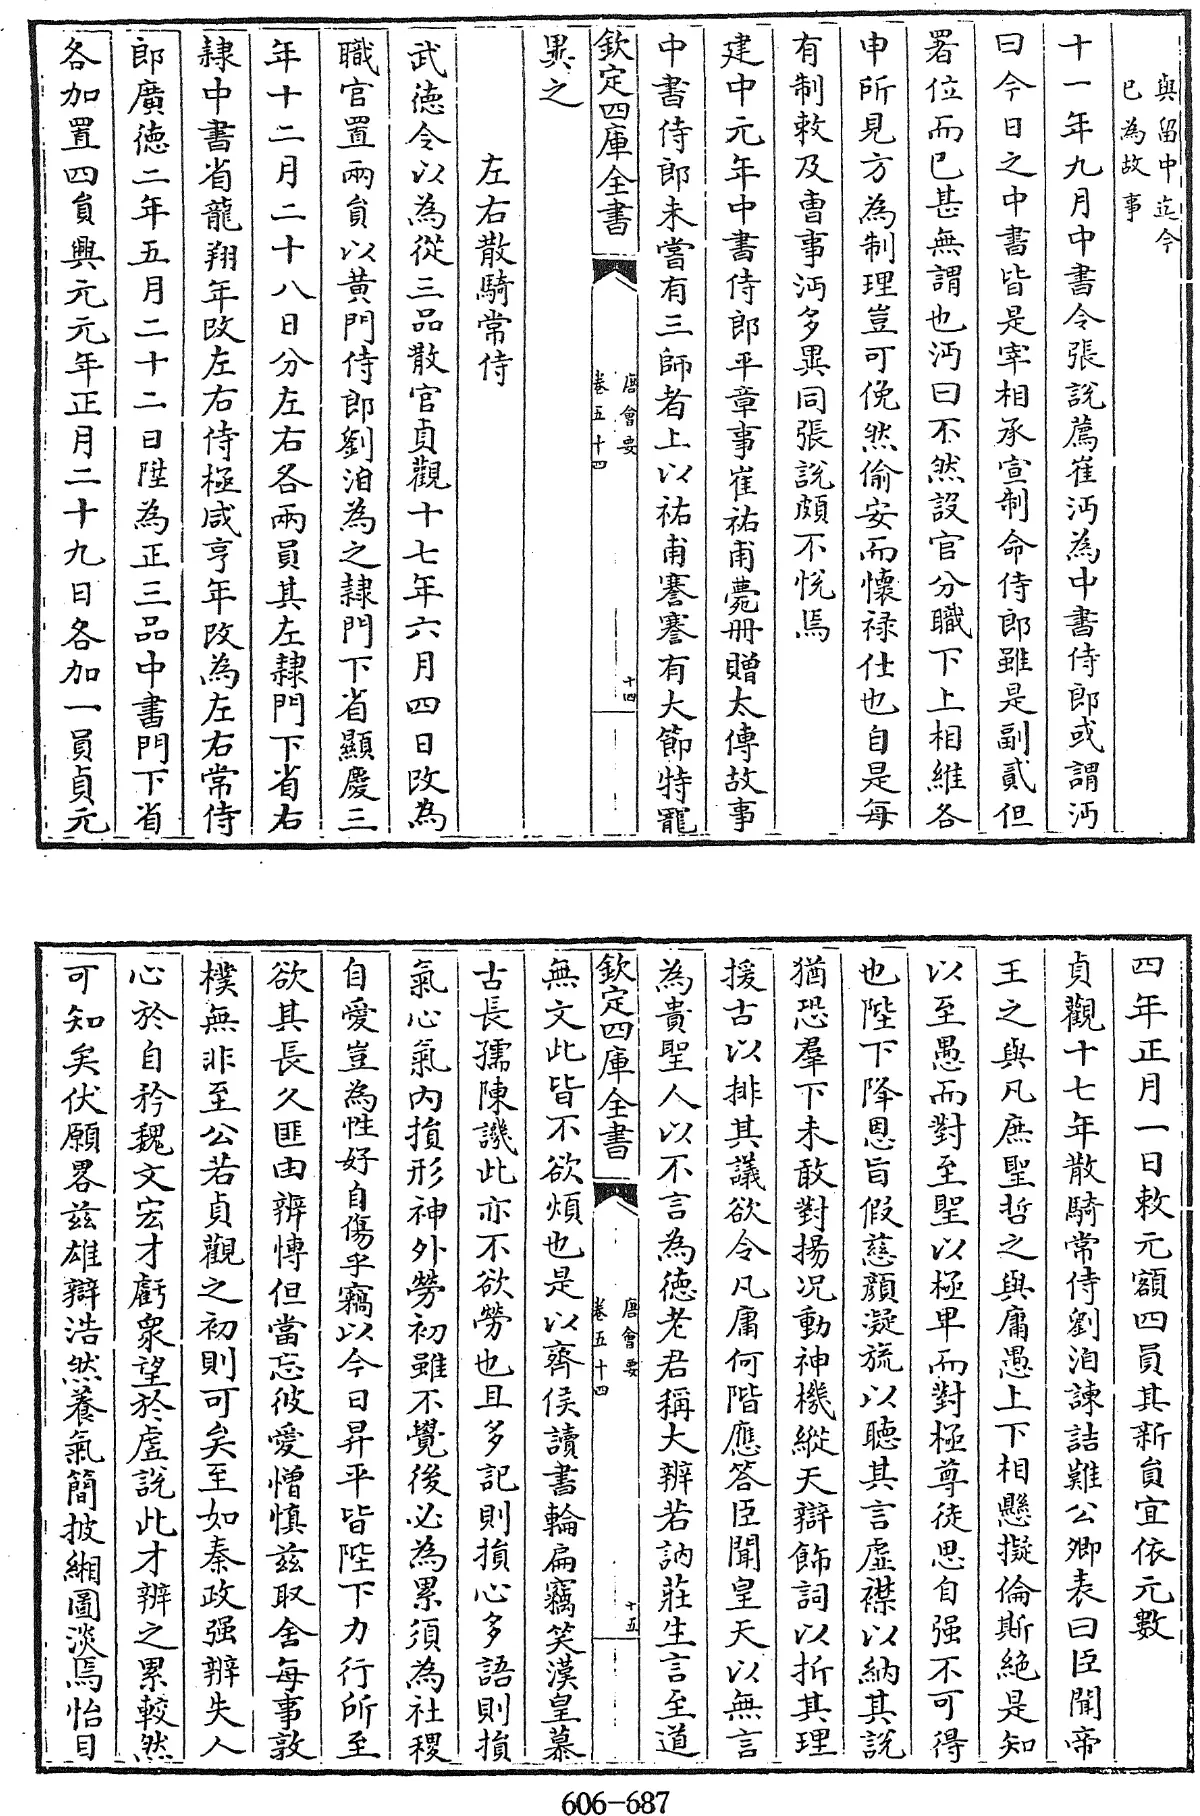 與留中迄今
已為故事
十一年九月中書令張說薦崔沔為中書侍郎或謂沔
曰今日之中書皆是宰相承宣制命侍郎雖是副貳但
署位而已甚無謂也沔曰不然設官分職下上相維各
申所見方為制理豈可俛然偷安而懷禄仕也自是每
有制敕及曹事沔多異同張說頗不悅焉
建中元年中書侍郎平章事崔祐甫薨册贈太傅故事
中書侍郎未嘗有三師者上以祐甫謇謇有大節特寵
異之
欽定四庫全書
唐會要
卷五十四
十四
左右散騎常侍
武德令以為從三品散官貞觀十七年六月四日改為
職官置兩員以黄門侍郎劉洎為之隸門下省顯慶三
年十二月二十八日分左右各兩員其左隸門下省右
隸中書省龍翔年改左右侍極咸亨年改為左右常侍
郎廣德二年五月二十二日陞為正三品中書門下省
各加置四員興元元年正月二十九日各加一員貞元
四年正月一日敕元額四員其新員宜依元數
貞觀十七年散騎常侍劉洎諫詰難公卿表曰臣聞帝
王之與凡庶聖哲之與庸愚上下相懸擬倫斯絶是知
以至愚而對至聖以極卑而對極尊徒思自强不可得
也陛下降恩旨假慈顔凝旒以聽其言虛襟以納其說
猶恐羣下未敢對揚况動神機縱天辯飾詞以折其理
援古以排其議欲令凡庸何階應答臣聞皇天以無言
為貴聖人以不言為德老君稱大辨若訥莊生言至道
欽定四庫全書
唐會要
卷五十四
十五
無文此皆不欲煩也是以齊侯讀書輪扁竊笑漢皇慕
古長孺陳譏此亦不欲勞也且多記則損心多語則損
氣心氣内損形神外勞初雖不覺後必為累須為社稷
自愛豈為性好自傷乎竊以今日昇平皆陛下力行所至
欲其長久匪由辨愽但當忘彼愛憎慎兹取舍每事敦
樸無非至公若貞觀之初則可矣至如秦政强辨失人
心於自矜魏文宏才虧衆望於虚說此才辨之累較然
可知矣伏願畧兹雄辯浩然養氣簡披緗圖淡焉怡目
606-687